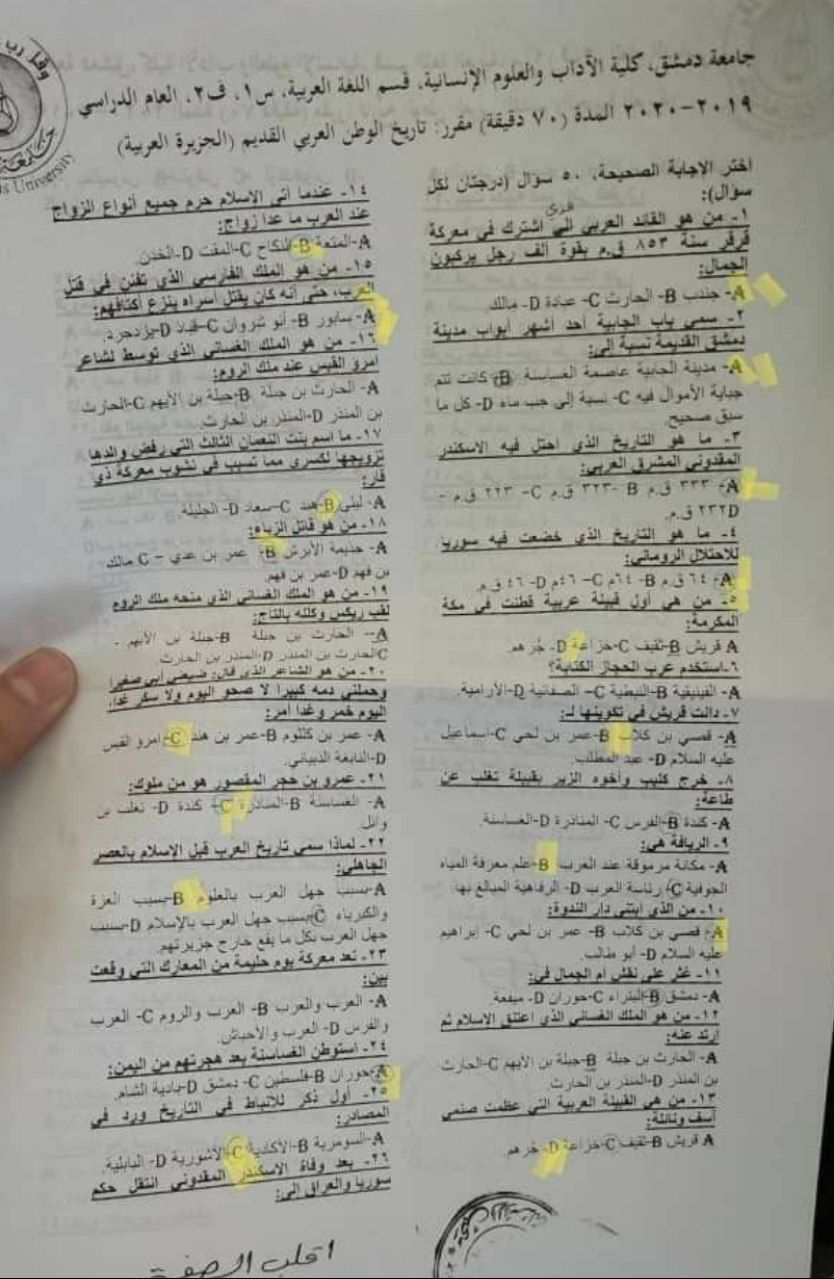 جامعة دمشق، كلية الآداب والعلوم الإنسانية، قسم اللغة العربية، س١، ف٢، العام الدراسي
٢٠١٩-٢٠٢٠ المدة (٧٠ دقيقة) مقرر: تاريخ الوطن العربي القديم (الجزيرة العربية)
اختر الإجابة الصحيحة، ٥٠ سؤال (درجتان لكل
سؤال):
١- من هو القائد العربي الي اشترك في معركة
قرقر سنة ٨٥٣ ق.م بقوة ألف رجل يركبون
الجمال:
A- جندب B- الحارث C- عبادة D- مالك.
٢- سمي باب الجابية أحد أشهر أبواب مدينة
دمشق القديمة نسبة إلى:
A- مدينة الجابية عاصمة الغساسنة B- كانت تتم
جباية الأموال فيه C- نسبة إلى جب ماء D- كل ما
سبق صحيح.
٣- ما هو التاريخ الذي احتل فيه الاسكندر
المقدوني المشرق العربي:
A- ٣٣٣ ق.م B- ٣٢٣ ق.م C- ٢٢٣ ق.م -
D٢٣٢ ق.م.
٤- ما هو التاريخ الذي خضعت فيه سوريا
للاحتلال الروماني:
A- ٦٤ ق.م B- ٦٤م C- ٤٦م D- ٤٦ ق.م.
٥- من هي أول قبيلة عربية قطنت في مكة
المكرمة:
A قريش B-ثقيف C-خزاعة D- جُرهم.
٦-استخدم عرب الحجاز الكتابة؟
A- الفينيقية B-النبطية C- الصفائية D-الأرامية.
٧- دالت قريش في تكوينها لـ:
A- قصي بن كلاب B-عمر بن لحي C-اسماعيل
عليه السلام D- عبد المطلب.
٨- خرج كليب وأخوه الزير بقبيلة تغلب عن
طاعة:
A- كندة B-الفرس C- المناذرة D-الغساسنة.
٩- الريافة هي:
A- مكانة مرموقة عند العرب B-علم معرفة المياه
الجوفية C- رئاسة العرب D- الرفاهية المبالغ بها.
١٠- من الذي ابتنى دار الندوة:
A- قصي بن كلاب B- عمر بن لحي C- إبراهيم
عليه السلام D- أبو طالب.
١١- عُثر على نقش أم الجمال في:
A- دمشق B-البتراء C-حوران D- ميفعة.
١٢- من هو الملك الغساني الذي اعتنق الاسلام ثم
ارتد عنه:
A- الحارث بن جبلة B-جبلة بن الأيهم C-الحارث
بن المنذر D-المنذر بن الحارث.
١٣- من هي القبيلة العربية التي عظمت صنمي
أسف ونائلة:
A قريش B-ثقيف C-خزاعة D- جُرهم.
١٤- عندما أتى الإسلام حرم جميع أنواع الزواج
عند العرب ما عدا زواج:
A-المتعة B-النكاح C-المقت D-الخدن.
١٥- من هو الملك الفارسي الذي تفنن في قتل
العرب، حتى أنه كان يقتل أسراه بنزع أكتافهم:
A- سابور B- أنو شروان C-قباذ D-يزدجرد.
١٦- من هو الملك الغساني الذي توسط لشاعر
امرؤ القيس عند ملك الروم:
A- الحارث بن جبلة B-جبلة بن الأيهم C-الحارث
بن المنذر D-المنذر بن الحارث.
١٧- ما اسم بنت النعمان الثالث التي رفض والدها
تزويجها لكسرى مما تسبب في نشوب معركة ذي
قار:
A- لبنى B-هند C-سعاد D- الجليلة
١٨- من هو قاتل الزباء:
A- جذيمة الأبرش B- عمر بن عدي - C مالك
بن فهم D-عمر بن فهم.
١٩- من هو الملك الغساني الذي منحه ملك الروم
لقب ريكس وكلله بالتاج:
A- الحارث بن جبلة B-جبلة بن الأيهم -
C الحارث بن المنذر D-المنذر بن الحارث.
٢٠- من هو الشاعر الذي قال: ضيعني أبي صغيرا
وحملني دمه كبيرا لا صحو اليوم ولا سكر غدا،
اليوم خمر وغدا أمر:
A- عمر بن كلثوم B-عمر بن هند C- امرؤ القيس
D-النابغة الذبياني.
٢١- عمرو بن حجر المقصور هو من ملوك:
A- الغساسنة B-المناذرة C- كندة D- تغلب بن
وائل.
٢٢- لماذا سمي تاريخ العرب قبل الإسلام بالعصر
الجاهلي:
A-بسبب جهل العرب بالعلوم B-بسبب العزة
والكبرياء C-بسبب جهل العرب بالإسلام D-بسبب
جهل العرب بكل ما يقع خارج جزيرتهم.
٢٣- تعد معركة يوم حليمة من المعارك التي وقعت
بين:
A- العرب والعرب B- العرب والروم C- العرب
والفرس D- العرب والأحباش.
٢٤- استوطن الغساسنة بعد هجرتهم من اليمن:
A-حوران B-فلسطين C- دمشق D-بادية الشام.
٢٥- أول ذكر للأنباط في التاريخ ورد في
المصادر:
A-السومرية B-الأكادية C-الأشورية D- البابلية.
٢٦- بعد وفاة الاسكندر المقدوني انتقل حكم
سوريا والعراق إلى:
اقلب الصفحة